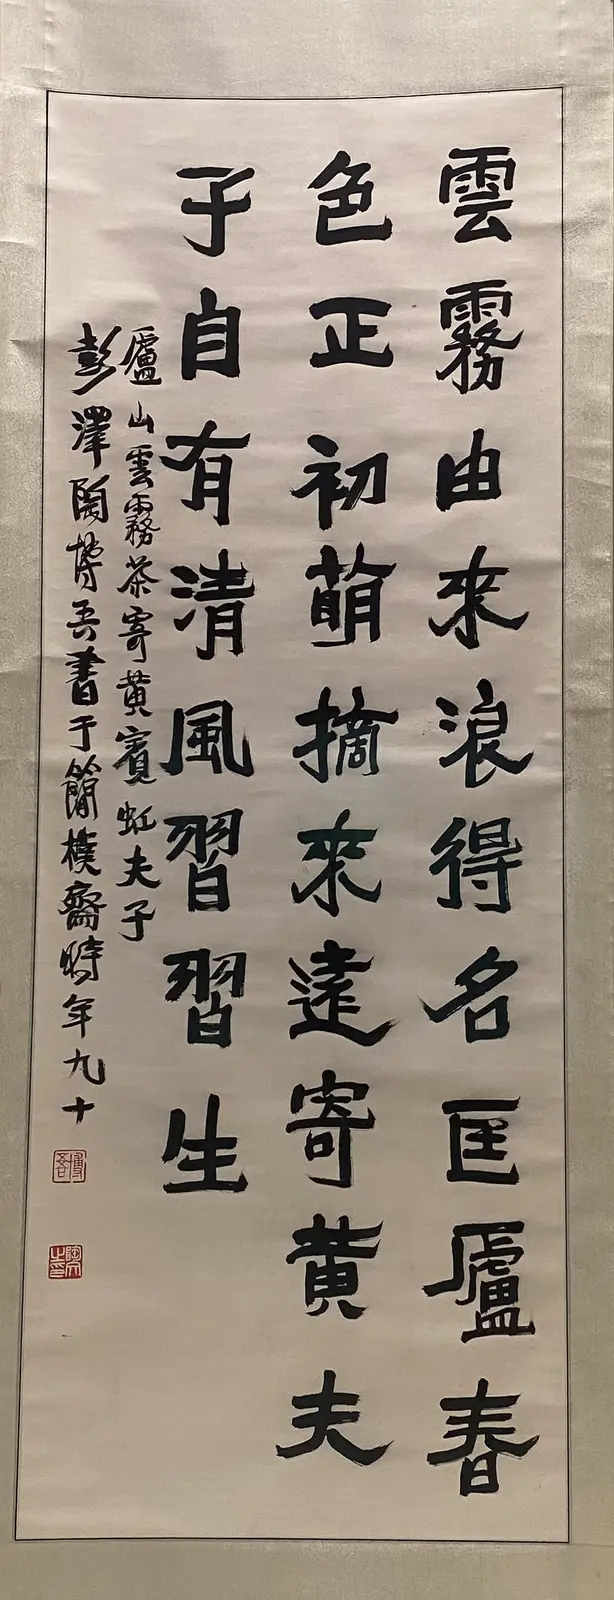 雲霧由來浪得名匡廬春
色正初萌摘來遠寄黄夫
子自有清風習習生
廬山雲霧茶寄黄賓虹夫子
彭澤陶博吾書于簡樸齋時年九十
博吾